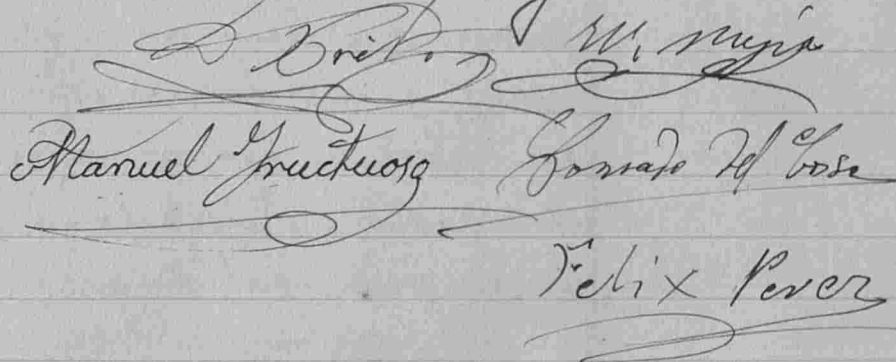 M. Mejia
Manuel Fructuoso Conrado del Cosa
Felix Perez